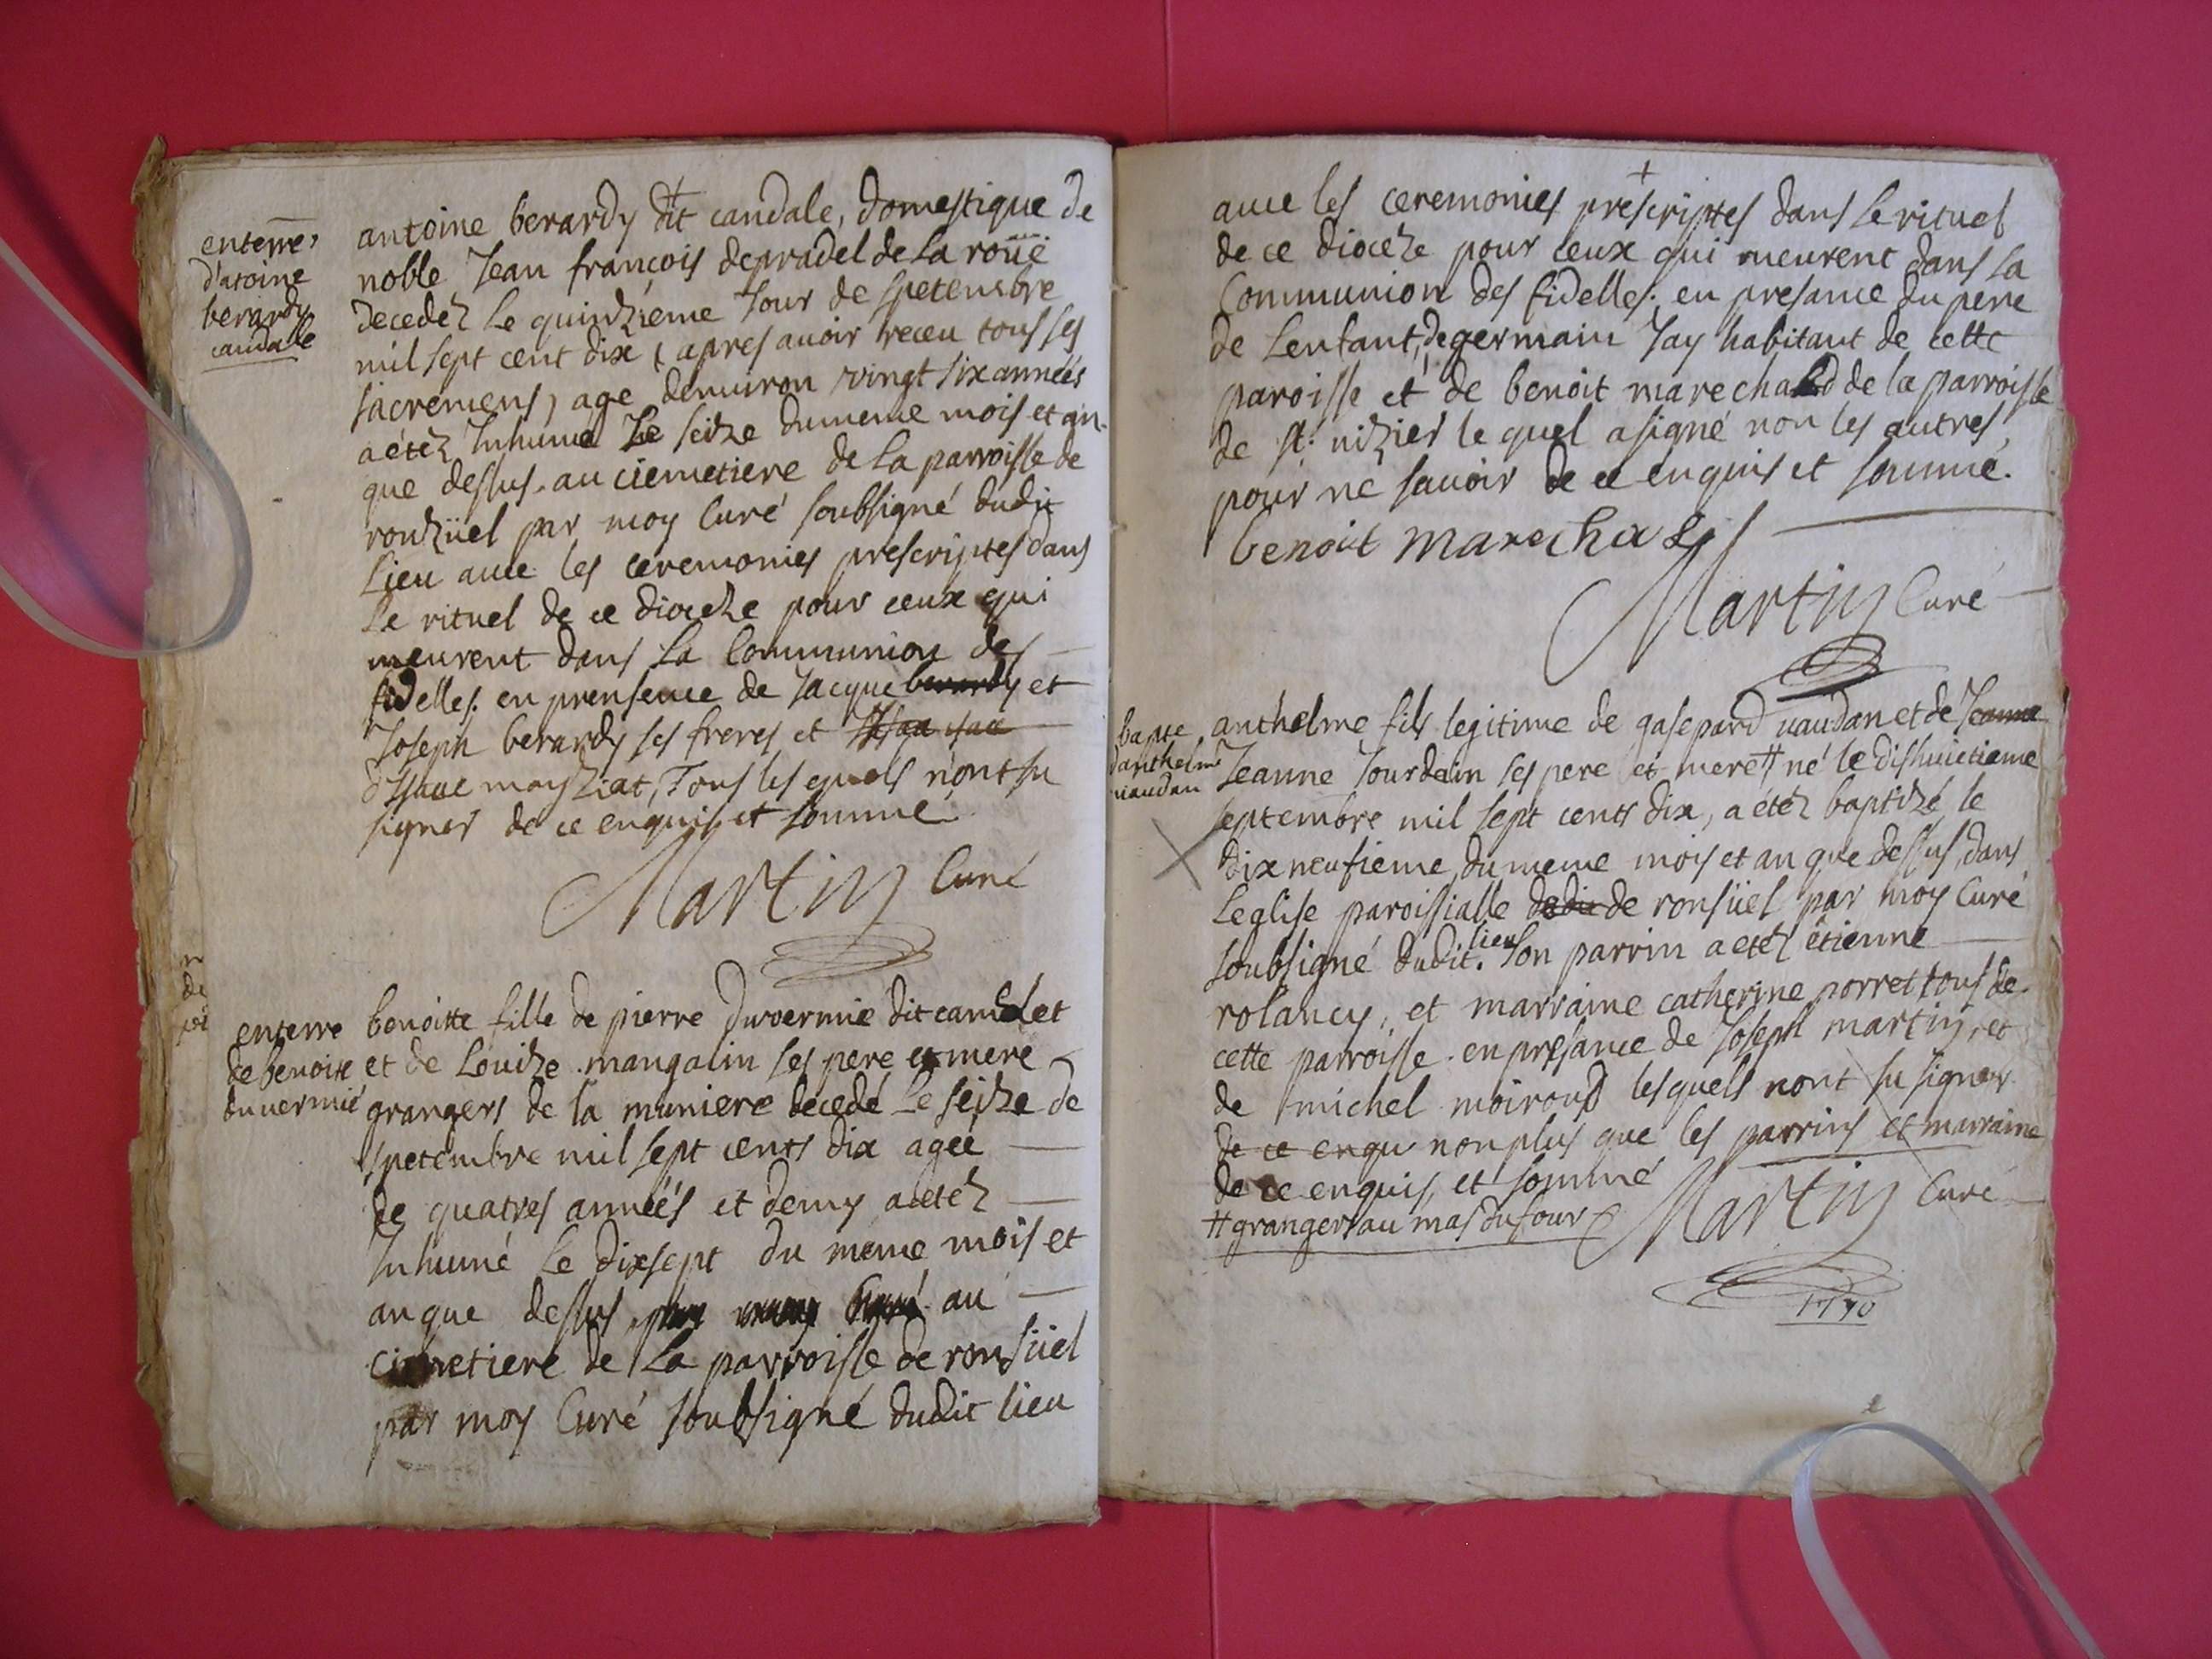 enterre
d'atoine
berardy
candale
antoine berardy dit candale, domestique de
noble Jean françois depradel de la roüe
decedez le quinzieme Jour de spetembre
mil sept cent dix, apres auoir receu tous ses
sacremens, age denuiron vingt six années
a étéz Inhumé le seize dumeme mois et an
que dessus. au ciemetiere de la parroisse de
ronzüel par moy Curé soubsigné dudit
Lieu auec les ceremonies prescriptes dans
le rituel de ce dioceze pour ceux qui
meurent dans la Communion des
fidelles. en prensence de Jacque berardy et
Joseph berardy ses freres et
d'Isaac moysziat, Tous les quels n'ont su
signer de ce enquis et sommé
Martin Curé
enterre
de benoite
duuermié
benoitte fille de pierre Duvermié dit camelet
et de Louize mangalin ses pere et mere
grangers de la muniere décedé le seize de
spetembre mil sept cents dix ageé
de quatres anneés et demy a etéz
Inhumé le dixsept du meme mois et
an que dessus par moy Curé au
cimetiere de la parroisse de ronsüel
par moy Curé soubsigné dudit lieu
auec les ceremonies prescriptes dans le rituel
de ce dioceze pour ceux qui meurent dans la
Communion des fidelles; en presance du pere
de Lenfant, de germain Jay habitant de cette
paroisse et de benoit marechald de la parroisse
de st. nizier le quel a signé non les autres
pour ne sauoir de ce enquis et sommé.
benoit marechal
Martin Curé
bapte
danthelme
uaudan
anthelme fils legitime de gasepard uaudan et de Jeanne
Jeanne Jourdain ses pere et mere # né le dishuictieme
septembre mil sept cents dix, a étéz baptizé le
dix neufieme du meme mois et an que dessus, dans
Leglise paroissialle dedu de ronsüel par moy Curé
soubsigné dudit lieu. Son parrin a etéz étienne
rolancy, et marraine catherine porret tous de
cette parroisse. en presance de Joseph martin, et
de michel moiroud lesquels nont su signer
de ce enqu non plus que les parrins et marraine
de ce enquis, et sommé
# grangers au mas dufour
Martin Curé
1710